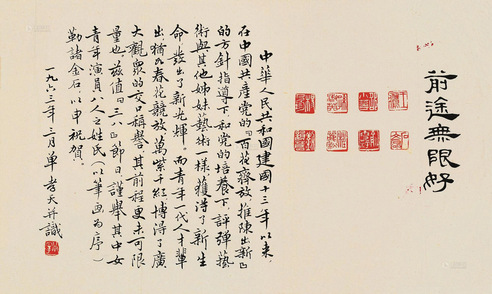 前途無限好
中華人民共和國建國十三年以來，
在中國共產党的『百花齊放，推陳出新』
的方針指導下，和党的培養下，評彈藝
術與其他姊妹藝術一樣獲得了新生
命，發出了新光輝。而青年一代人才輩
出，猶如春花競放，萬紫千紅，博得了廣
大觀衆的交口稱譽，其前程更未可限
量也。兹值『三八』節日，謹舉其中女
青年演員八人之姓氏（以筆画為序）
勒諸金石，以申祝賀。
一九六三年三月單孝天并識